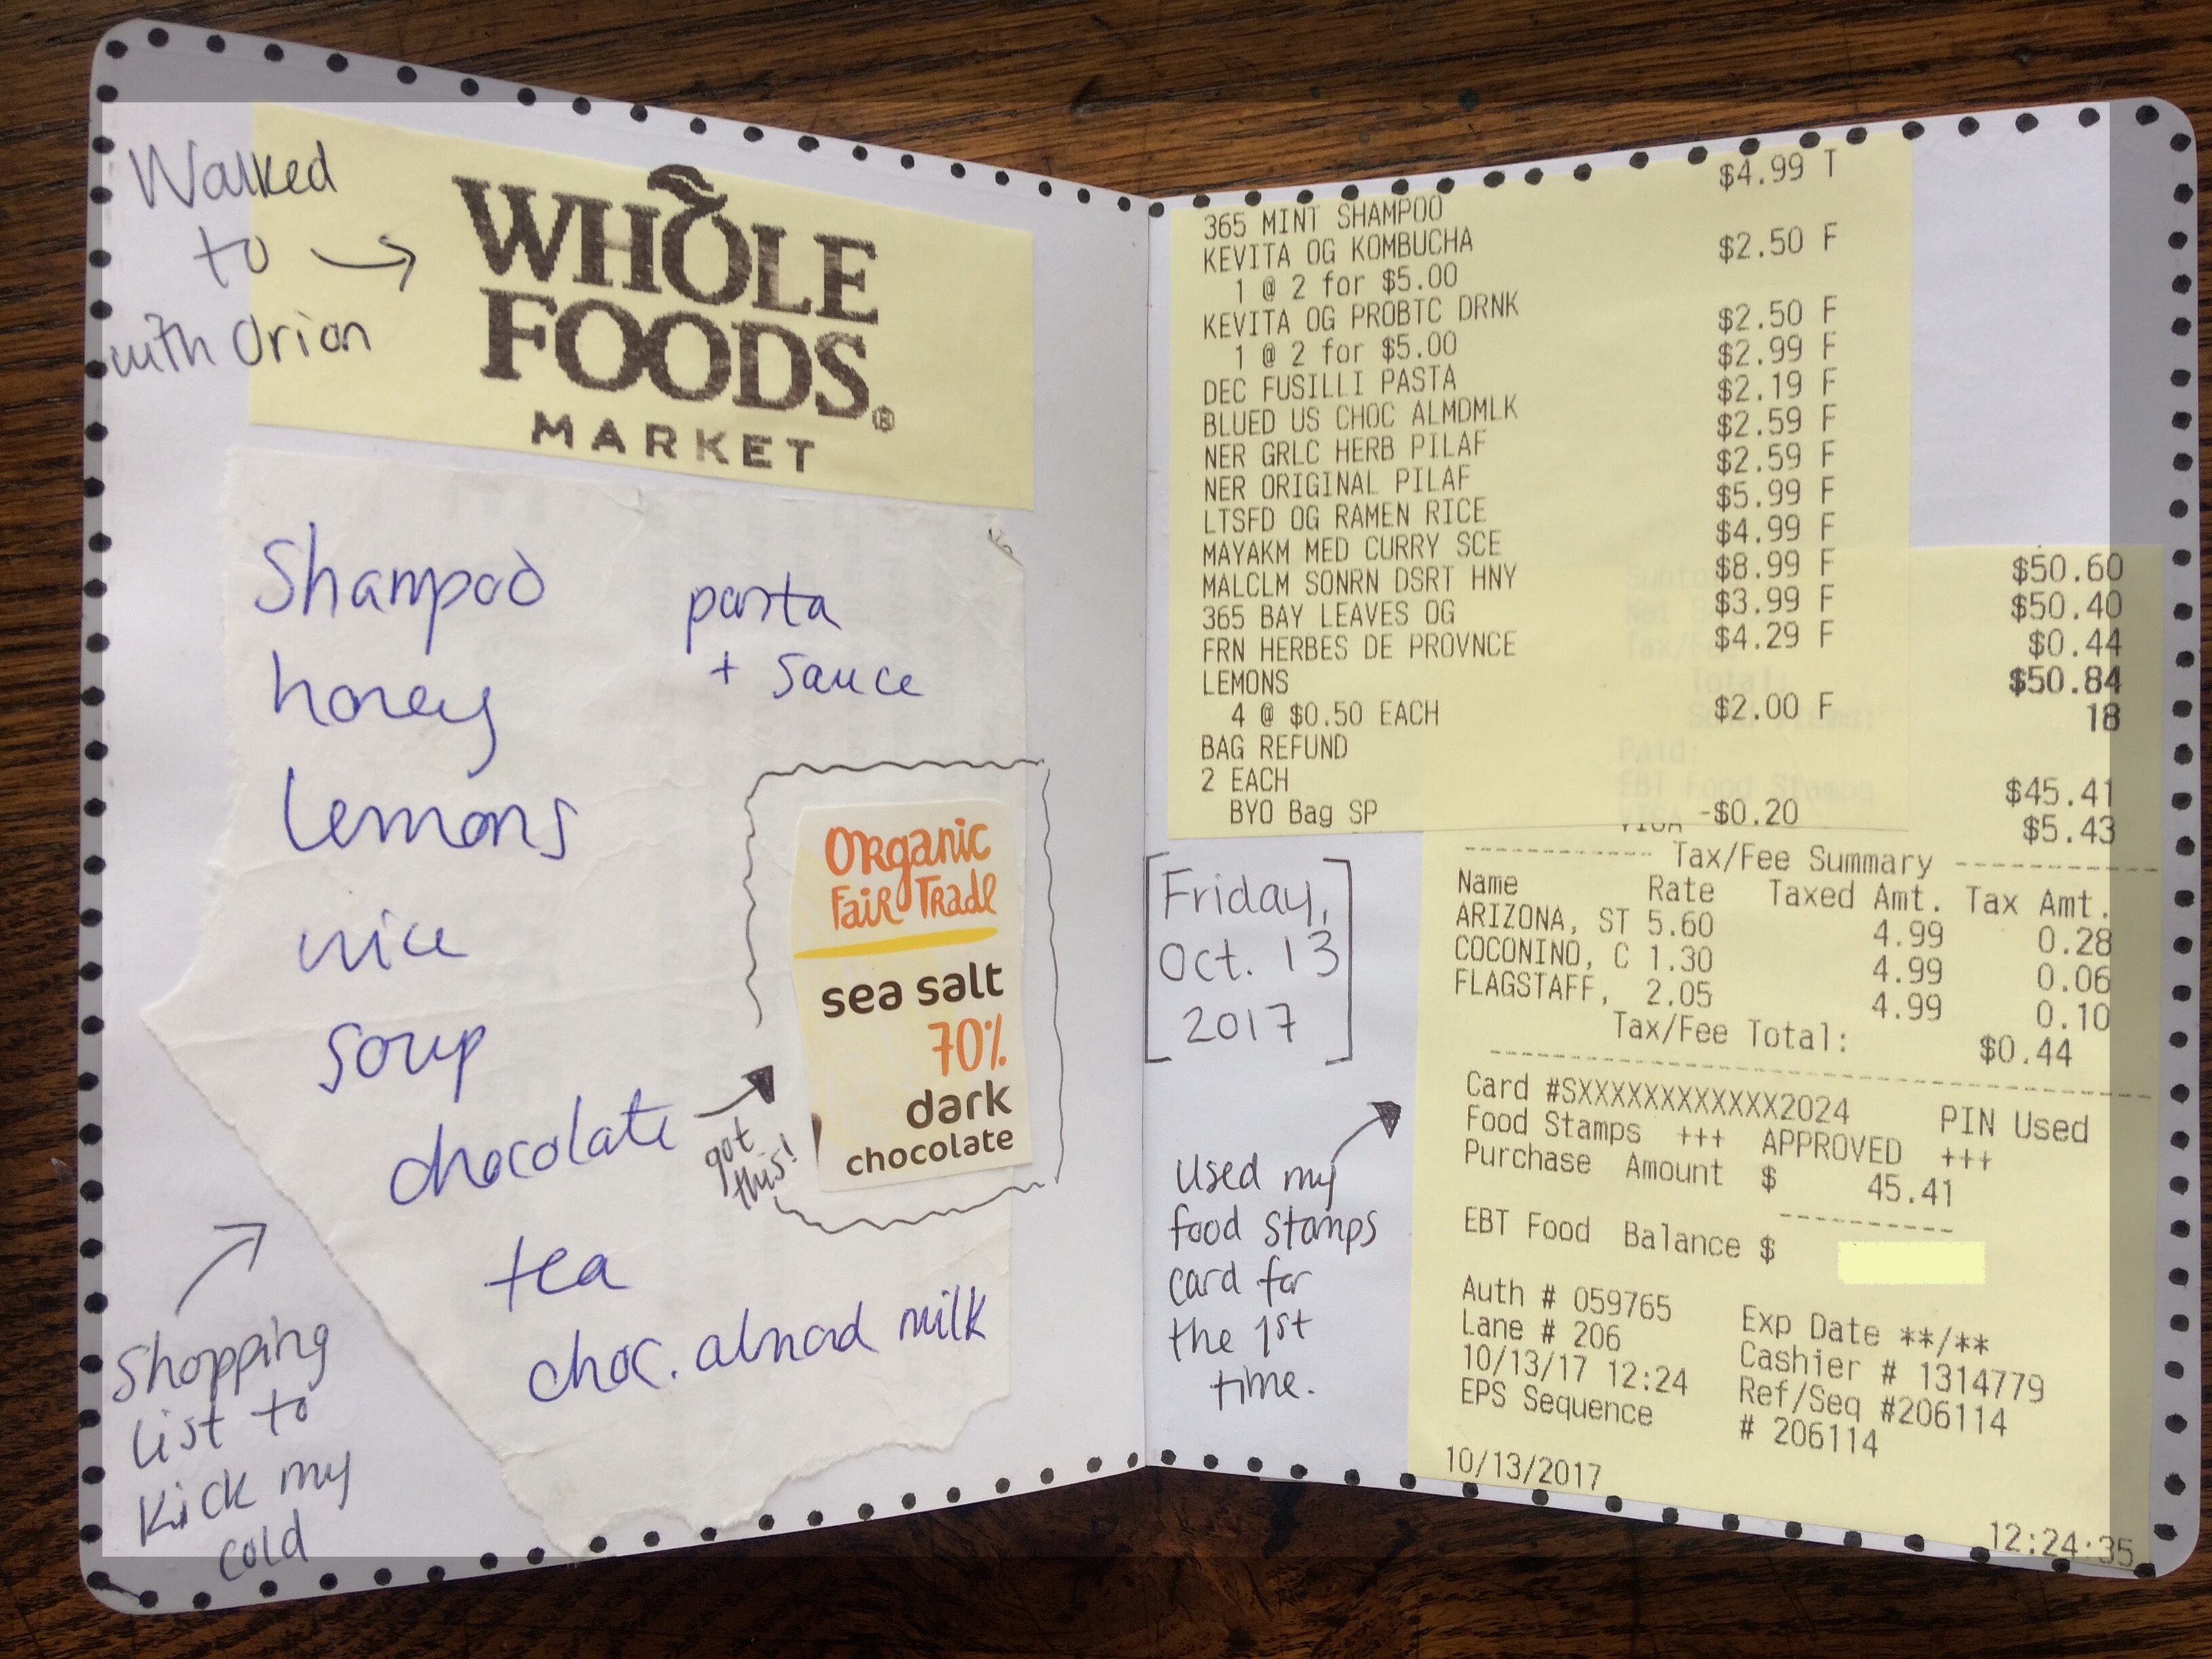 Walked
to
with Orion
WHOLE
FOODS®
MARKET
Shampoo
honey
lemons
rice
soup
chocolate
tea
choc. almond milk
pasta
+ sauce
got
this!
Organic
Fair Trade
sea salt
70%
dark
chocolate
Shopping
list to
kick my
cold
365 MINT SHAMPOO $4.99 T
KEVITA OG KOMBUCHA
1 @ 2 for $5.00 $2.50 F
KEVITA OG PROBTC DRNK
1 @ 2 for $5.00 $2.50 F
DEC FUSILLI PASTA $2.99 F
BLUED US CHOC ALMDMLK $2.19 F
NER GRLC HERB PILAF $2.59 F
NER ORIGINAL PILAF $2.59 F
LTSFD OG RAMEN RICE $5.99 F
MAYAKM MED CURRY SCE $4.99 F
MALCLM SONRN DSRT HNY $8.99 F
365 BAY LEAVES OG $3.99 F
FRN HERBES DE PROVNCE $4.29 F
LEMONS
4 @ $0.50 EACH $2.00 F
BAG REFUND
2 EACH
BYO Bag SP -$0.20
$50.60
$50.40
$0.44
Total: $50.84
18
Paid:
EBT Food Stamps $45.41
VISA $5.43
Tax/Fee Summary
Name Rate Taxed Amt. Tax Amt.
ARIZONA, ST 5.60 4.99 0.28
COCONINO, C 1.30 4.99 0.06
FLAGSTAFF, 2.05 4.99 0.10
Tax/Fee Total: $0.44
Card #SXXXXXXXXXXXX2024 PIN Used
Food Stamps +++ APPROVED +++
Purchase Amount $ 45.41
EBT Food Balance $
Auth # 059765 Exp Date **/**
Lane # 206 Cashier # 1314779
10/13/17 12:24 Ref/Seq #206114
EPS Sequence # 206114
10/13/2017 12:24:35
[Friday,
Oct. 13
2017]
Used my
food stamps
card for
the 1st
time.